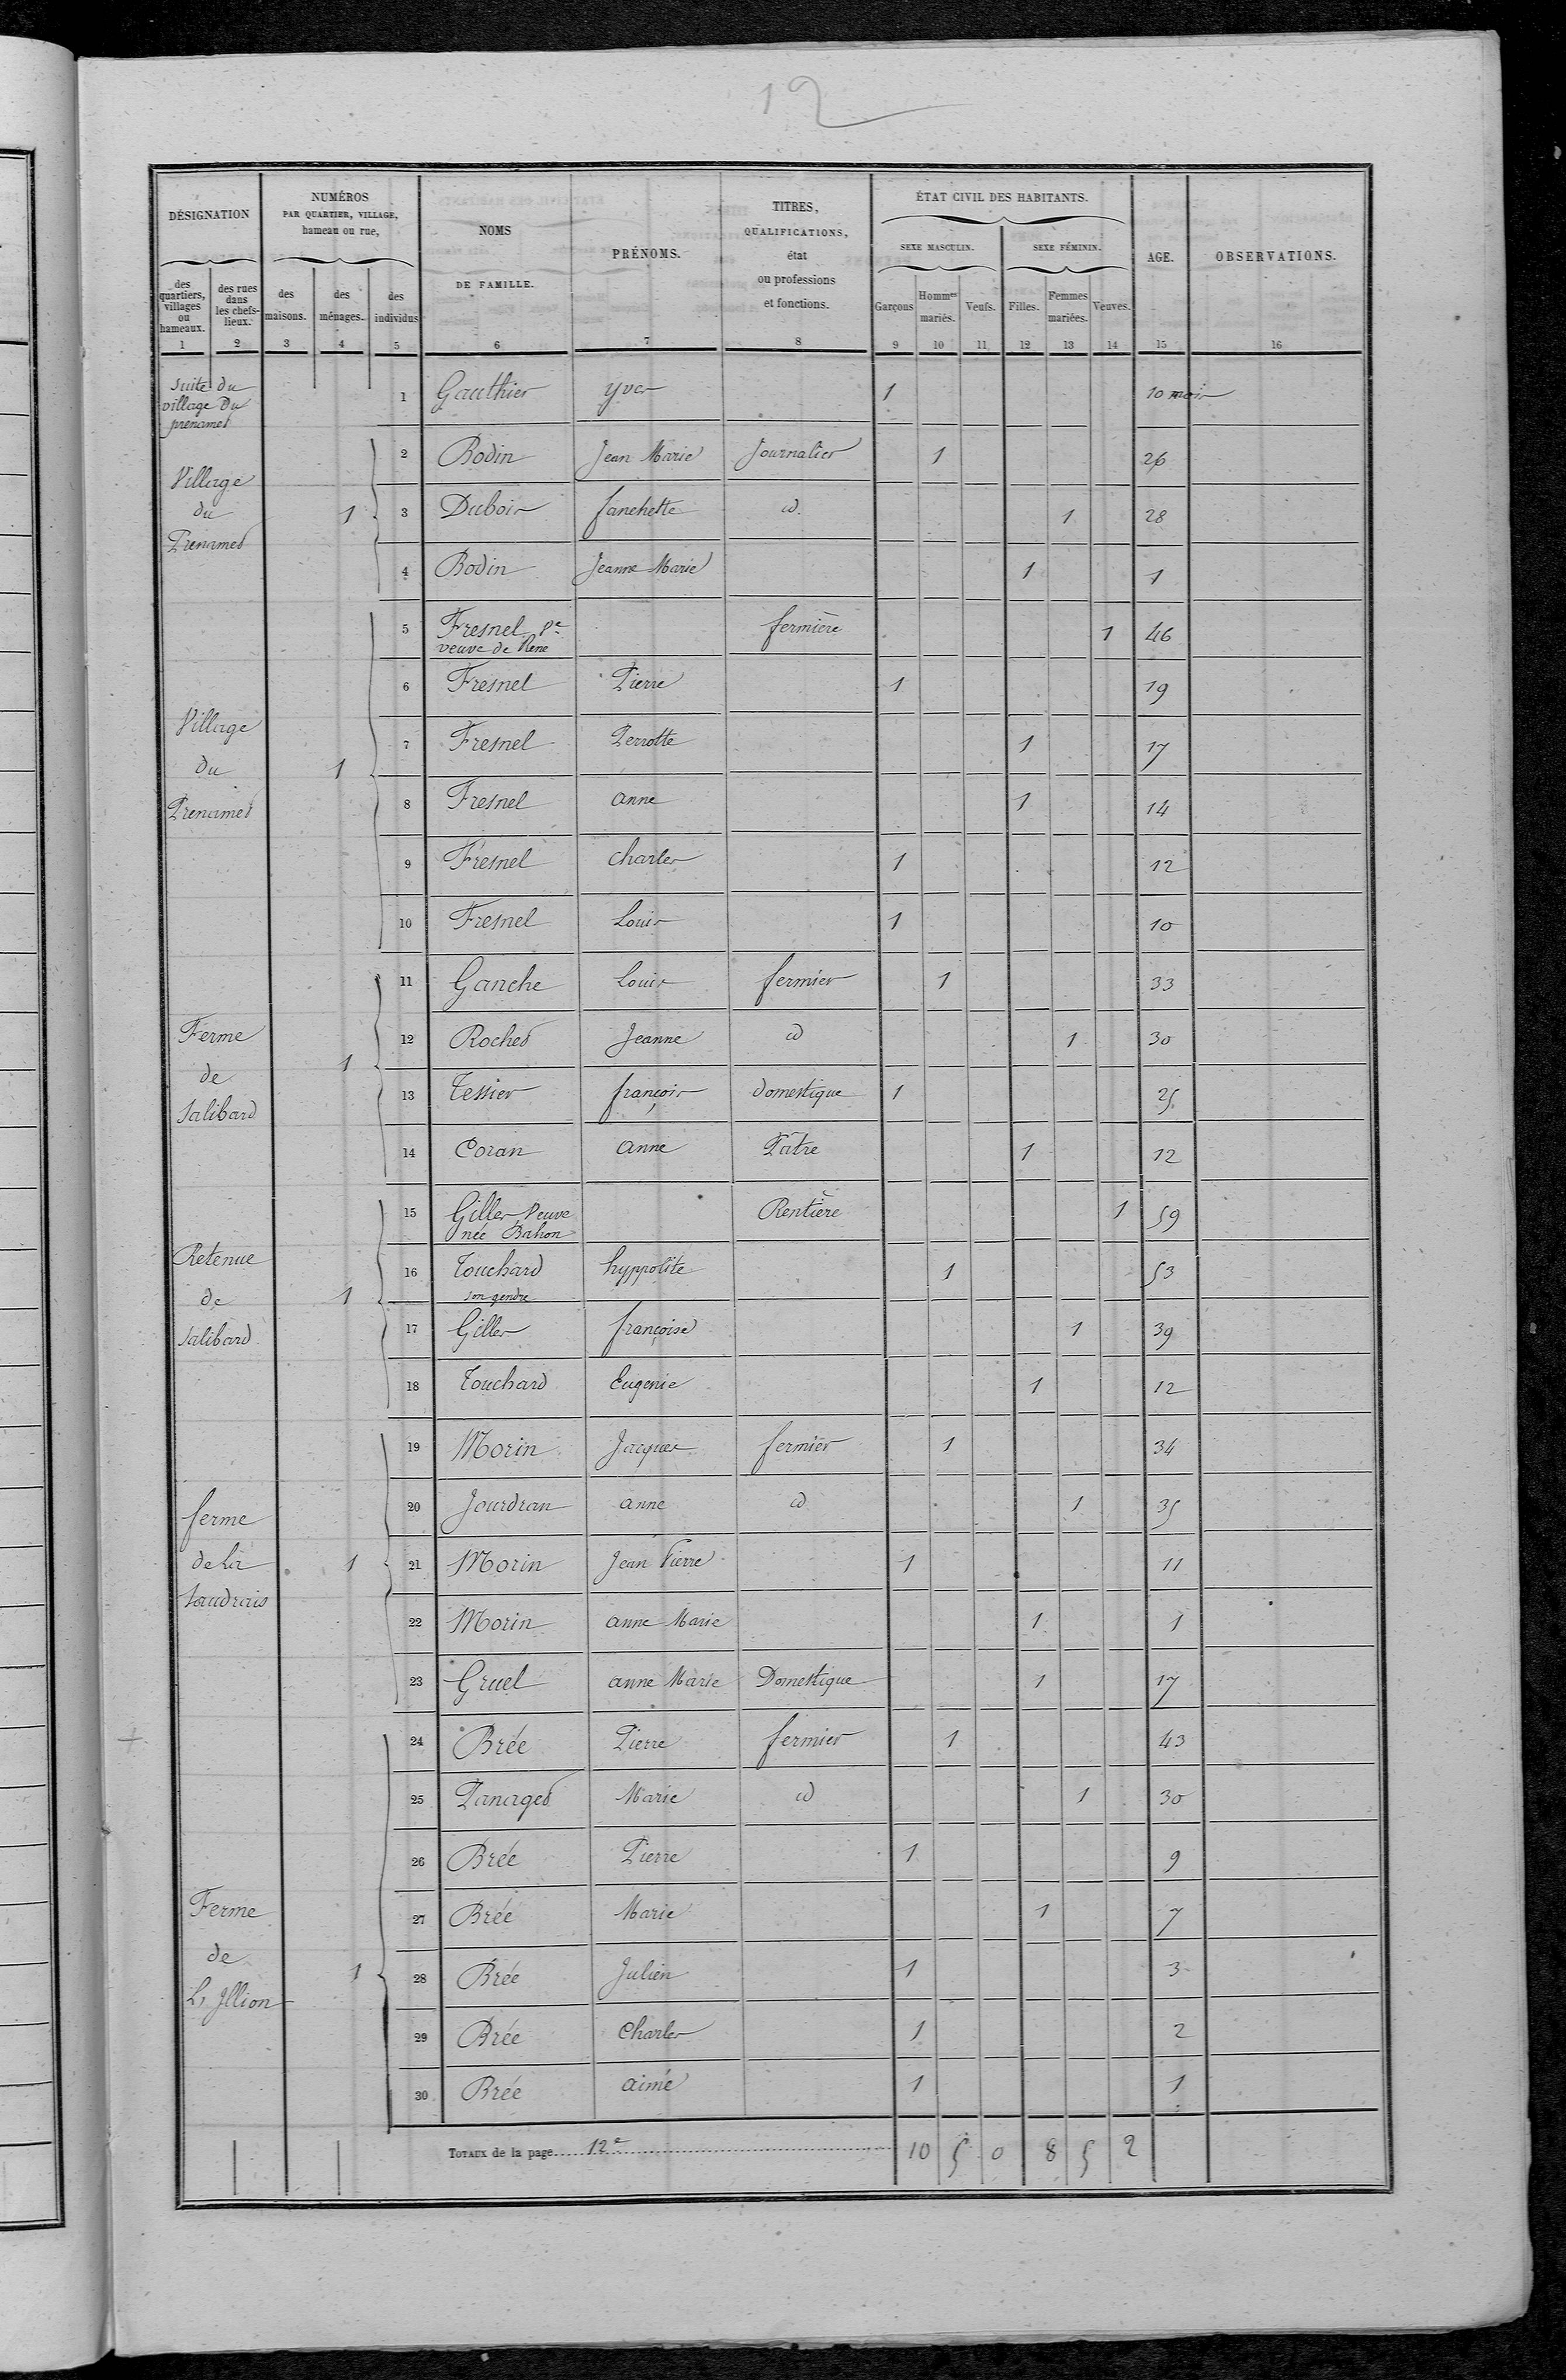 12
DÉSIGNATION
NUMÉROS
PAR QUARTIER, VILLAGE,
hameau ou rue,
NOMS
DE FAMILLE.
PRÉNOMS.
TITRES,
QUALIFICATIONS,
état
ou professions
et fonctions.
ÉTAT CIVIL DES HABITANTS.
SEXE MASCULIN.
SEXE FÉMININ.
AGE.
OBSERVATIONS.
des quartiers, villages ou hameaux.
des rues dans les chefs-lieux.
des maisons.
des ménages.
des individus
Garçons
Hommes mariés.
Veufs.
Filles.
Femmes mariées.
Veuves.
1 2 3 4 5 6 7 8 9 10 11 12 13 14 15 16
suite du village du prenamed
1 Gauthier yves 1 10 mois
Village du Prenamed 1
2 Bodin Jean Marie Journalier 1 26
3 Dubois fanchette id. 1 28
4 Bodin Jeanne Marie 1 1
Village du Prenamed 1
5 Fresnel Ve veuve de Rene fermière 1 46
6 Fresnel Pierre 1 19
7 Fresnel Perrotte 1 17
8 Fresnel anne 1 14
9 Fresnel charles 1 12
10 Fresnel Louis 1 10
Ferme de Salibard 1
11 Ganche Louis fermier 1 33
12 Roched Jeanne id 1 30
13 Tessier françois domestique 1 25
14 Coran anne Pâtre 1 12
Retenue de Salibard 1
15 Gilles Veuve née Bahon Rentière 1 59
16 Touchard son gendre hyppolite 1 53
17 Gilles françoise 1 39
18 Touchard Eugenie 1 12
ferme de La Saudrais 1
19 Morin Jacques fermier 1 34
20 Jourdran anne id 1 35
21 Morin Jean Pierre 1 11
22 Morin anne Marie 1 1
23 Gruel anne Marie Domestique 1 17
Ferme de L'Illion 1
24 Brée Pierre fermier 1 43
25 Panaged Marie id 1 30
26 Brée Pierre 1 9
27 Brée Marie 1 7
28 Brée Julien 1 3
29 Brée Charles 1 2
30 Brée aimé 1 1
TOTAUX de la page 12e 10 5 0 8 5 2